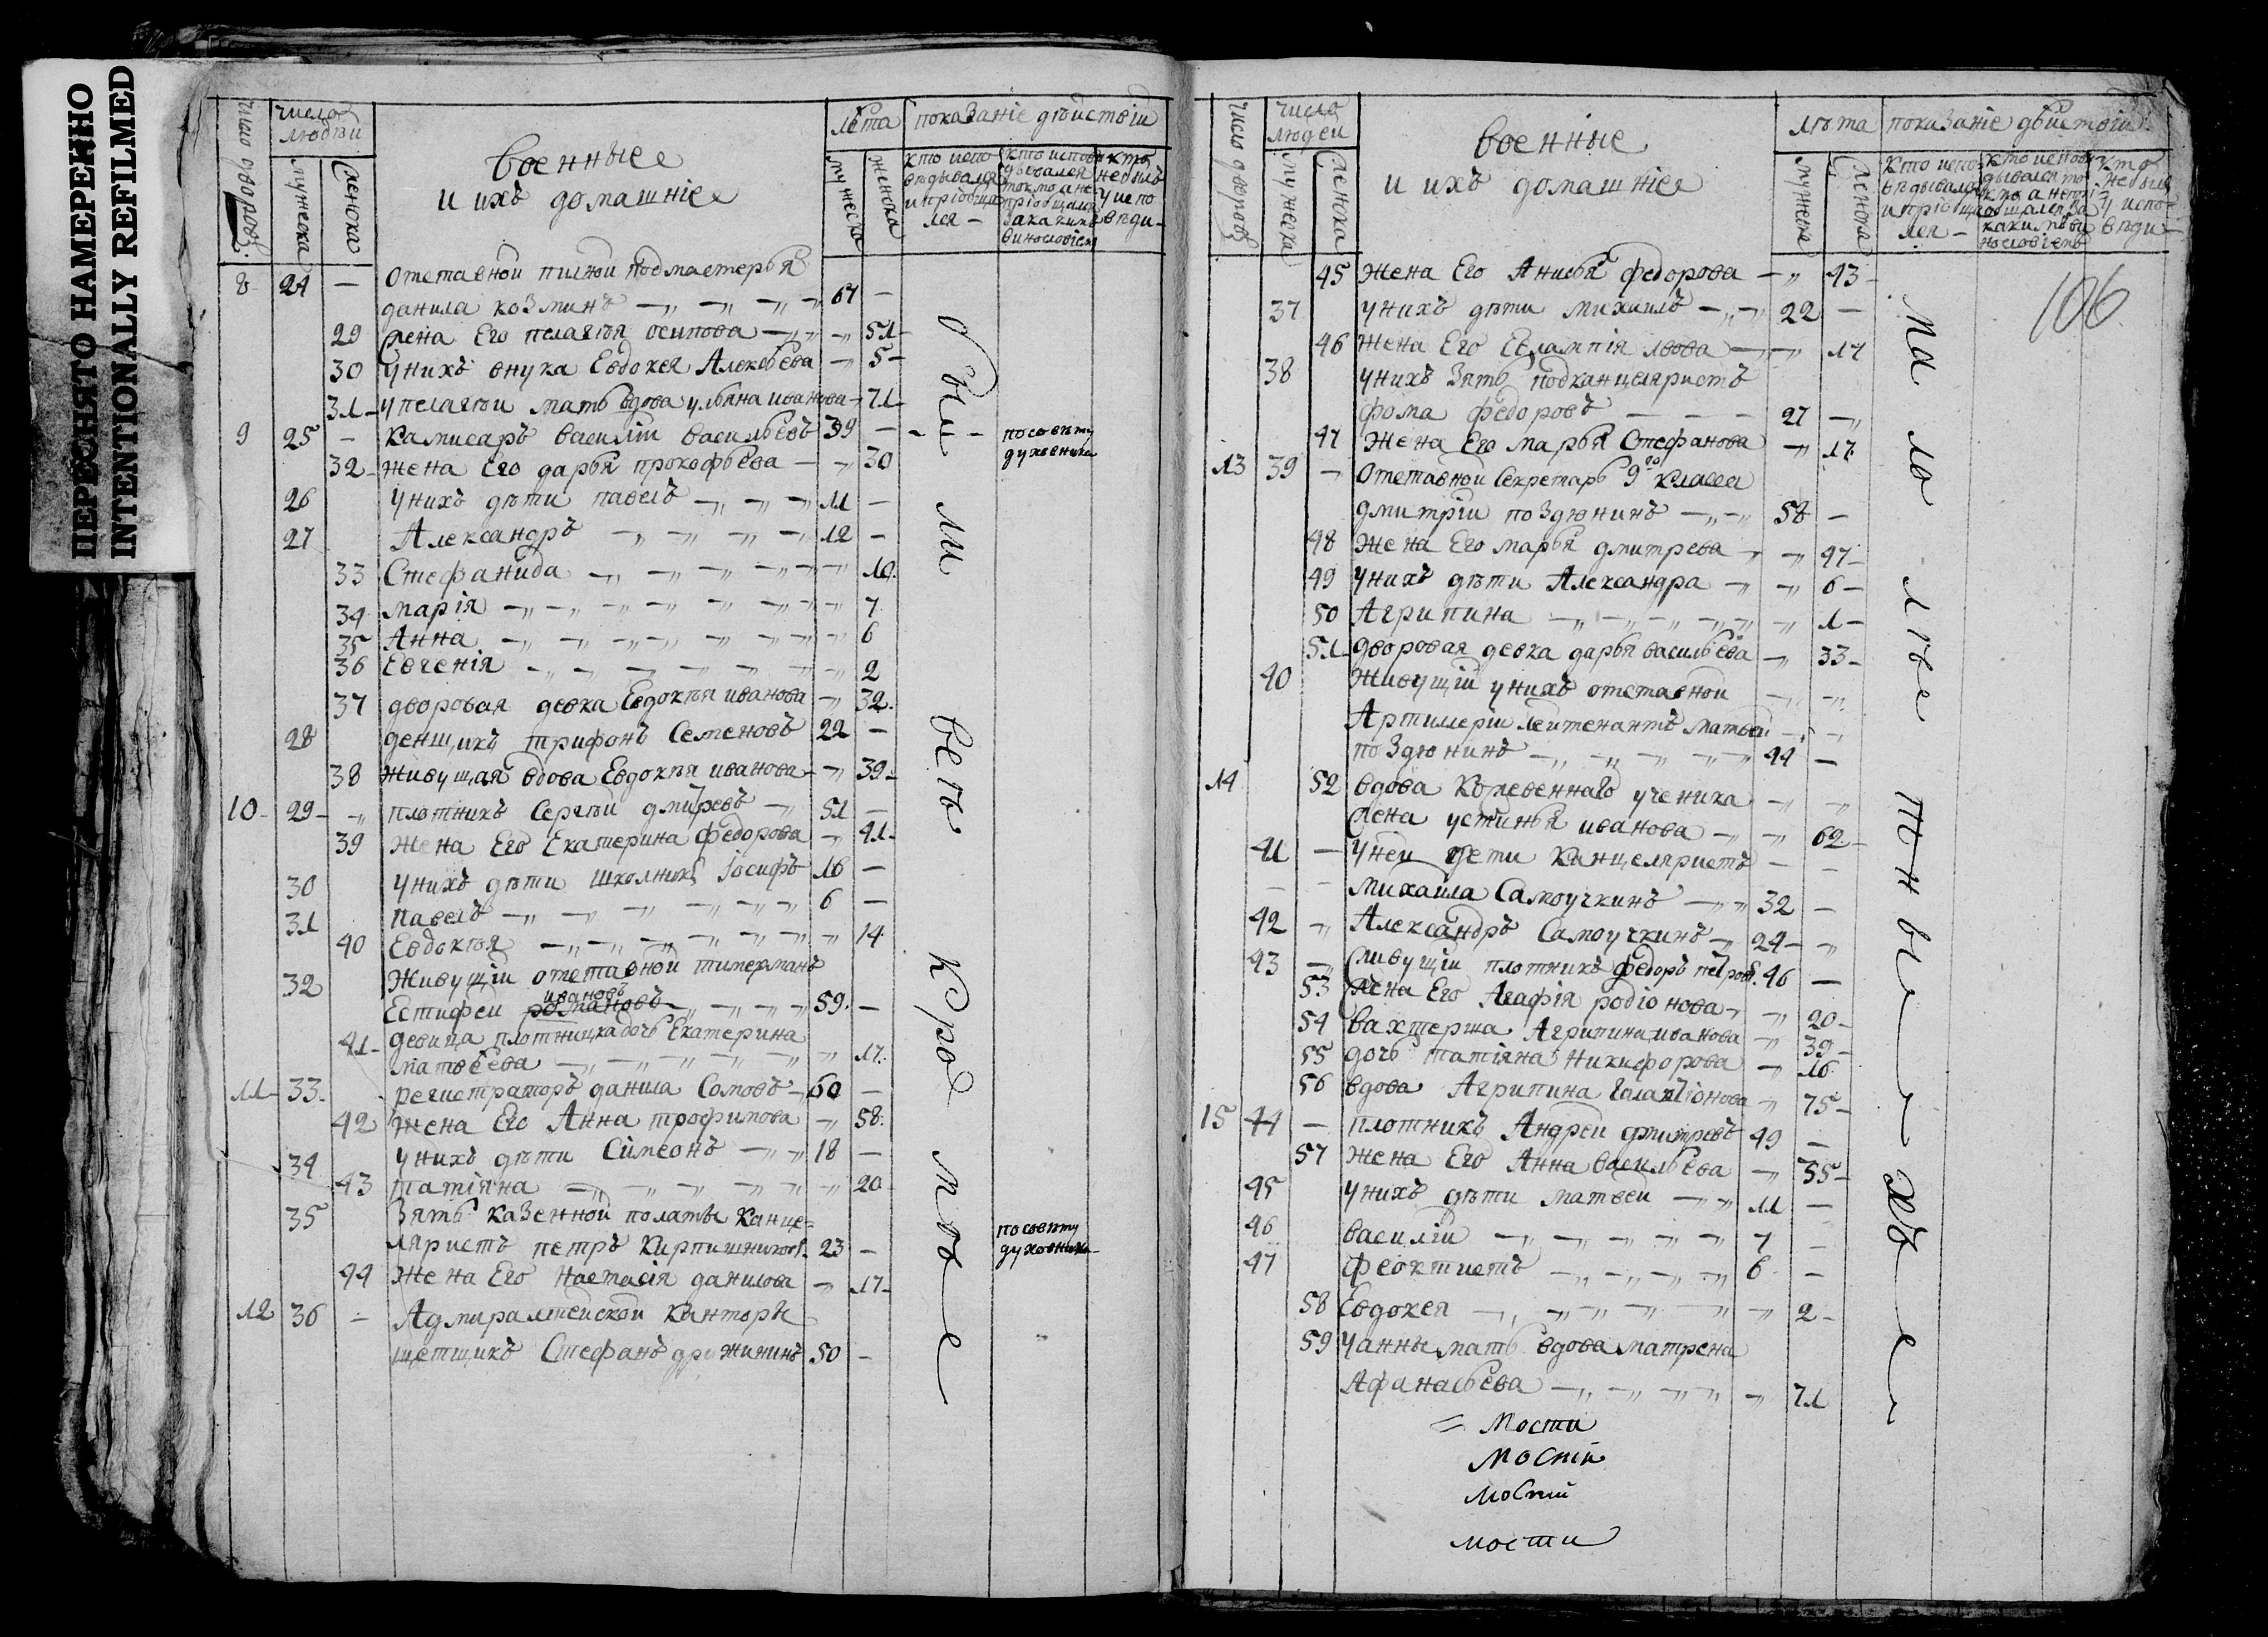 ПЕРЕСНЯТО НАМЕРЕННО
INTENTIONALLY REFILMED
число дворовъ
число людеи
мужеска
женска
военные
и ихъ домашніе
лѣта
мужеска
женска
показаніе дѣиствіи
кто испо
вѣдывался
и пріобща
лся —
кто испов
дывался
токмо а не
пріобщался
за какимъ
винословіем
кто
не былъ
у испо
вѣди —
8 24 — отставнои пилнои подмастерья
данила козминъ 67 —
29 жена Его пелагѣя осипова 51
30 унихъ внука Евдокея Алексѣева 5
31 упелагѣи мать вдова ульяна иванова 71
9 25 — камисаръ василіи васильевъ 39 — посовѣту
32 жена Его дарья прокофьева 30 духовника
26 унихъ дѣти павелъ 11 —
27 Александръ 12 —
33 Стефанида 10
34 марія 7
35 Анна 6
36 Евгенія 2
37 дворовая девка Евдокѣя иванова 32
28 денщикъ трифонъ Семеновъ 22 —
38 живущая вдова Евдокѣя иванова 39
10 29 плотникъ Сергѣи дмитревъ 51 —
39 жена Его Екатерина федорова 41
30 унихъ дѣти школникъ Іосифъ 16 —
31 павелъ 6 —
40 Евдокѣя 14
32 Живущіи отставнои тимерманъ
ивановъ
Естифеи романовъ 59 —
41 девица плотницка дочь Екатерина
матвѣева 17
11 33 регистраторъ данила Сомовъ 60 —
42 жена Его Анна трофимова 58
34 унихъ дѣти Сімеонъ 18 —
43 татіяна 20
35 Зять казеннои полаты канце= посовѣту
ляристъ петръ Кирпишниковъ 23 — духовника
44 жена Его настасія данилова 17
12 36 — Адмиралтеискои канторы
щетщикъ Стефанъ дружининъ 50 —
были вси кромѣ
число дворовъ
число людеи
мужеска
женска
военные
и ихъ домашніе
лѣта
мужеска
женска
показаніе дѣиствіи
106
45 жена Его Анисья федорова 43
37 унихъ дѣти михаилъ 22 —
46 жена Его Евлампія львова 17
38 унихъ Зять подканцеляристъ
фома федоровъ 27 —
47 жена Его марья Стефанова 17
13 39 — отставнои Секретарь 9го класса
дмитріи поздюнинъ 58 —
48 жена Его марья дмитрева 47
49 унихъ дѣти Александра 6
50 Агрипина 1
51 дворовая девка дарья васильева 33
40 живущіи унихъ отставнои
Артиллеріи леитенантъ матвеи
поздюнинъ 44 —
14 52 вдова Кожевеннаго ученика
жена устинья иванова 62
41 — унеи дети канцеляристъ —
михаила Самоучкинъ 32 —
42 Александръ Самоучкинъ 24
43 живущіи плотникъ федоръ петровъ 46 —
53 жена Его Агафія родіонова 20
54 вахтерша Агрипина иванова 39
55 дочь татіяна Никифорова 16
56 вдова Агрипина Галактіонова 75
15 44 — плотникъ Андреи дмитревъ 49 —
57 жена Его Анна васильева 35
45 унихъ дѣти матвеи 11 —
46 василіи 7 —
47 феоктистъ 6 —
58 Евдокея 2
59 уанны мать вдова матрена
Афанасьева 71
мало лѣтныихъ
= мости
мости
мости
мости